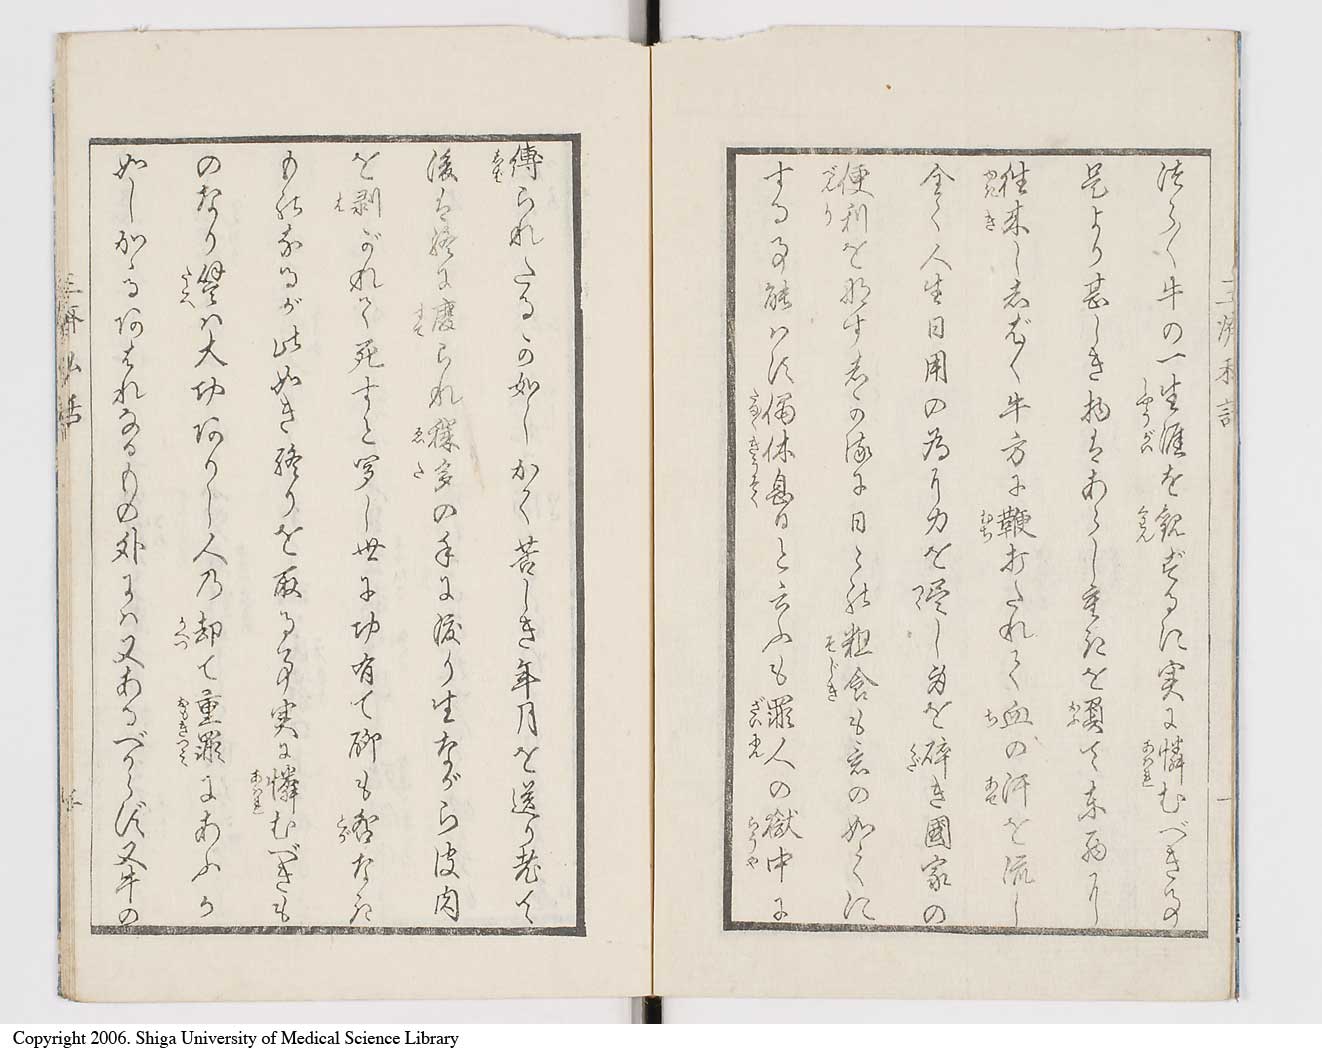 つら〳〵牛の一生涯を観ずるに実に憐むべき事
是より甚しき物はあらじ重きを負て東西に
往来ししば〳〵牛方に鞭打たれて血の汗を流し
全く人生日用の為に力を尽し身を砕き國家の
便利をなすしかの故に日々の粗食も意の如くに
する事能はず偶休息日と云ふも罪人の獄中に
縛られたるかの如しかく苦しき年月を送り老て
後は終に廃られ穢多の手に渡り生ながら皮肉
を剥がれて死すと聞し世に功有て聊も咎なき
ものなるが此如き終りを取る事実に憐むべきも
のなり譬は大功ありし人の却て重罪にあふが
如しかゝるあはれなるもの外には又あるべからず又牛の
Copyright 2006. Shiga University of Medical Science Library